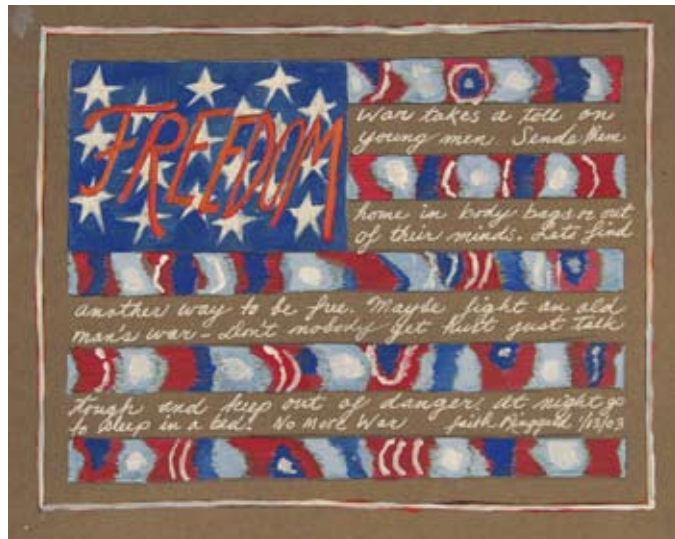 FREEDOM
War takes a toll on
young men. Sends them
home in body bags or out
of their minds. Lets find
another way to be free. Maybe fight an old
man's war - Don't nobody get hurt just talk
tough and keep out of danger. At night go
to sleep in a bed! No More War Faith Ringgold 1/13/03